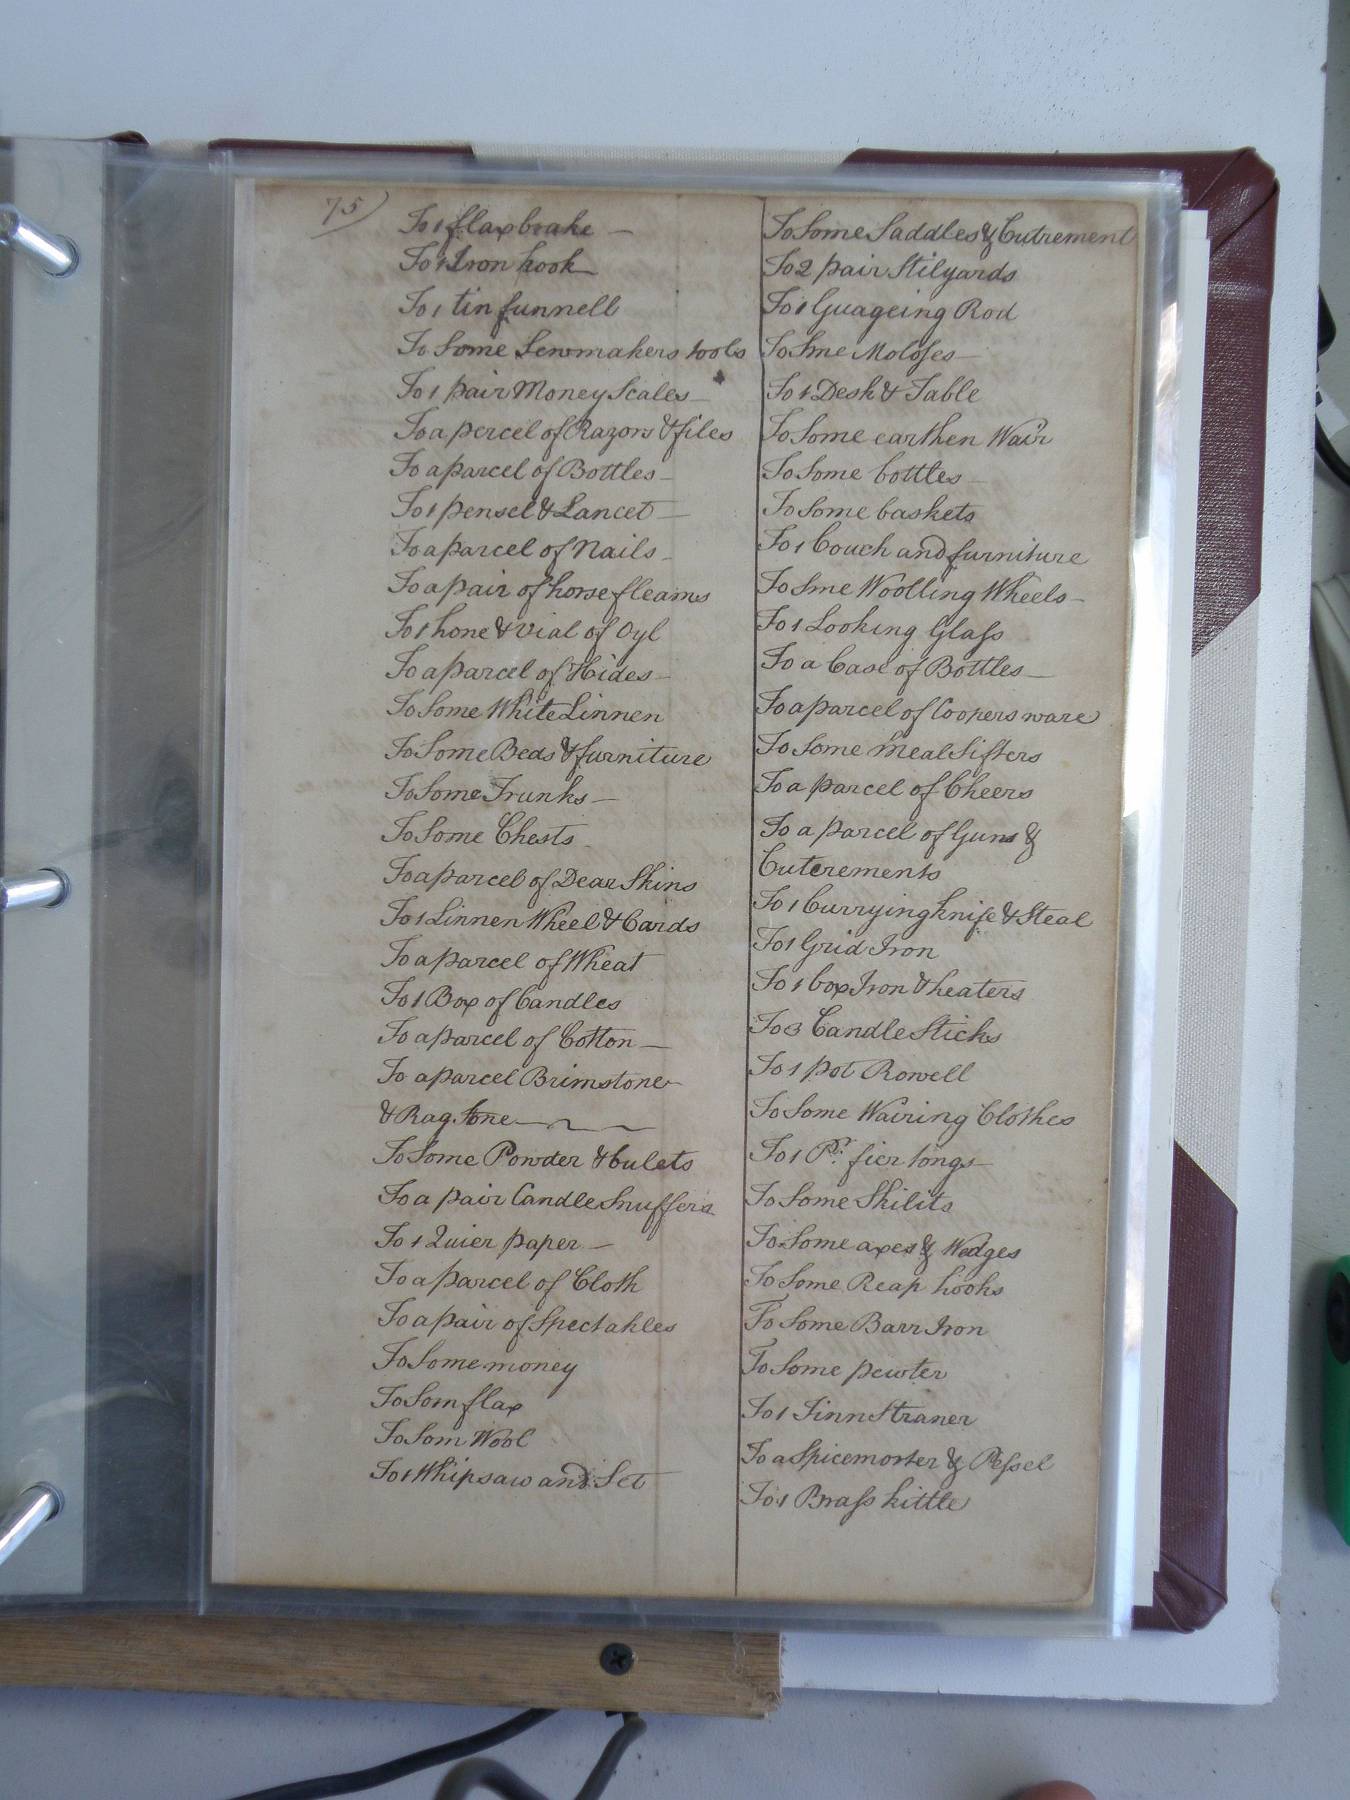 75)
To 1 flax brake —
To 1 Iron hook
To 1 tin funnell
To Some Sewmakers tools
To 1 pair Money Scales
To a percel of Razors & files
To a parcel of Bottles
To 1 pensel & Lancet
To a parcel of Nails
To a pair of horse fleams
To 1 hone & vial of Oyl
To a parcel of Hides
To Some White Linnen
To Some Beds & furniture
To Some Trunks —
To Some Chests
To a parcel of Dear Skins
To 1 Linnen Wheel & Cards
To a parcel of Wheat
To 1 Box of Candles
To a parcel of Cotton —
To a parcel Brimstone
& Rag Stone
To Some Powder & bulets
To a pair Candle Snuffers
To 1 Quier paper —
To a parcel of Cloth
To a pair of Spectakles
To Some money
To Som flax
To Som Wool
To 1 Whipsaw and Set
To Some Saddles & Cutrement
To 2 pair Stilyards
To 1 Guageing Rod
To Sme Moloses
To 1 Desk & Table
To Some earthen Wair
To Some bottles
To Some baskets
To 1 Couch and furniture
To Sme Woolling Wheels
To 1 Looking Glass
To a Case of Bottles
To a parcel of Coopers ware
To Some meal Sifters
To a parcel of Cheers
To a parcel of Guns &
Cuterements
To 1 Currying knife & Steal
To 1 Grid Iron
To 1 box Iron & heaters
To 3 Candle Sticks
To 1 pot Rowell
To Some Wairing Clothes
To 1 Pr. fier tongs
To Some Skilits
To Some axes & Wedges
To Some Reap hooks
To Some Barr Iron
To Some pewter
To 1 Tinn Straner
To a Spicemorter & Pessel
To 1 Brass kittle